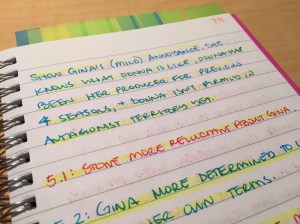 79
SHOW GINA'S (MILD) ANNOYANCE. SHE
KNOWS WHAT DONNA IS LIKE, DONNA HAD
BEEN HER PRODUCER FOR PREVIOUS
4 SEASONS, + DONNA ISN'T FIRMLY IN
ANTAGONIST TERRITORY YET.
5.1: STONE MORE RELUCTANT ABOUT GINA
5.2: GINA MORE DETERMINED TO
HER OWN TERMS.